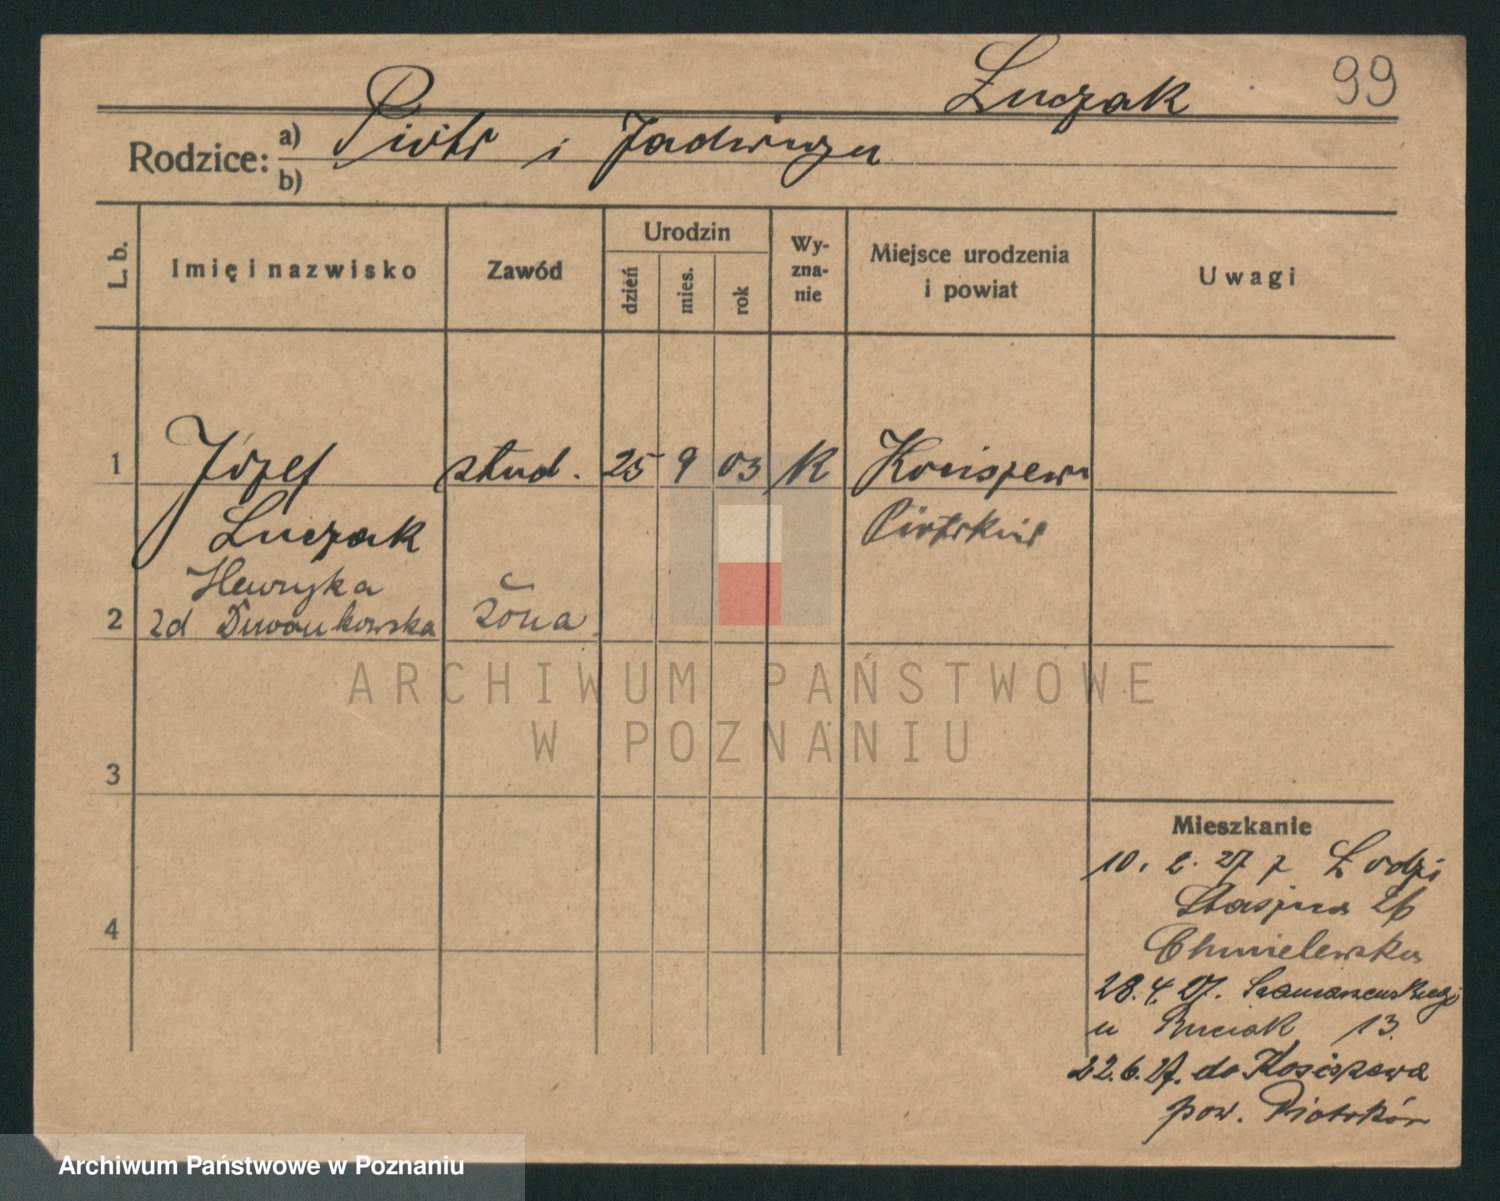 Łuczak 99
Rodzice: a) Piotr i Jadwiga
b)
L. b. Imię i nazwisko Zawód Urodzin dzień mies. rok Wy-zna-nie Miejsce urodzenia i powiat Uwagi
1 Józef stud. 25 9 03 K Kociszew
Łuczak Piotrków
Henryka
2 zd żona
3
4
ARCHIWUM PAŃSTWOWE
W POZNANIU
Mieszkanie
10. 2. 27 z Łodzi
26
Chmielewska
28.4.27.
u 13.
22.6.27. do Kociszewa
pow. Piotrków
Archiwum Państwowe w Poznaniu